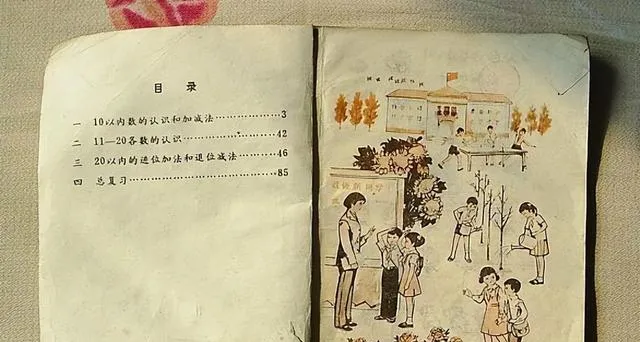 目 录
一 10以内数的认识和加减法……………3
二 11—20各数的认识……………42
三 20以内的进位加法和退位减法……………46
四 总复习……………85